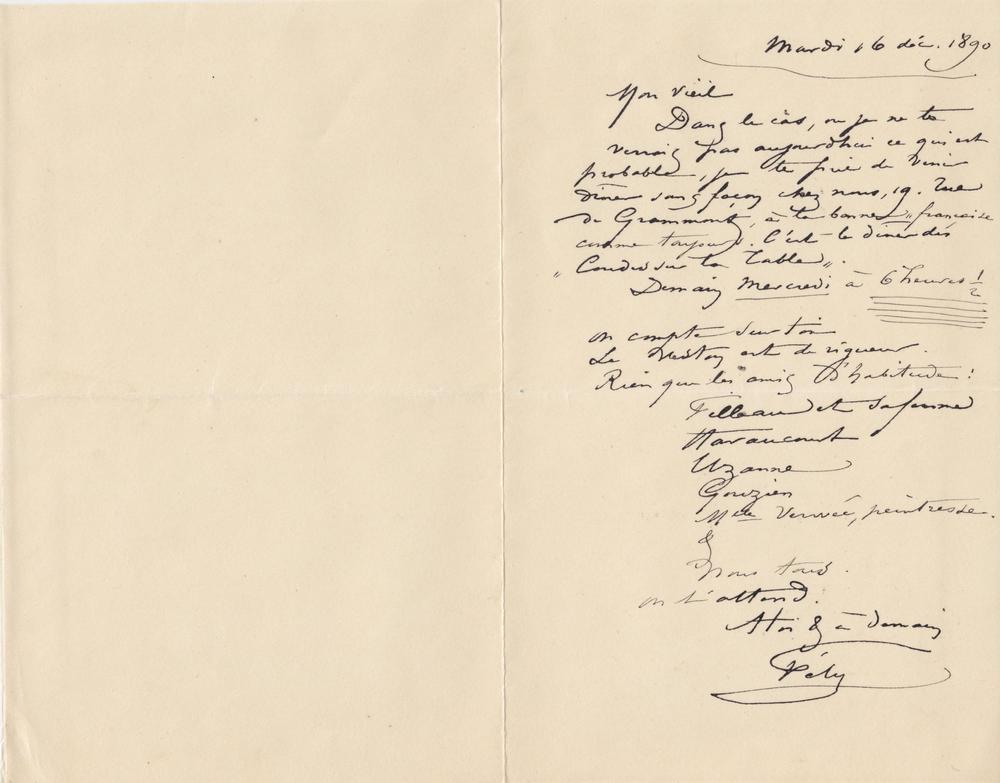 Mardi 16 déc. 1890
Mon vieil
Dans le cas, ou je ne te
verrais pas aujourdhui ce qui est
probable, je te prie de venir
dîner sans façon chez nous, 19. Rue
de Grammont, à la bonne „française
comme toujours. C'est le dîner des
„Coudes sur la Table„.
Demain Mercredi à 6 heures ½
on compte sur toi
Le Veston est de rigueur.
Rien que les amis d'habitude :
Filleau et sa femme
Haraucourt
Uzanne
Gouzien
Melle Vervée, peintresse.
&
Nous tous.
on t'attend.
A toi & à demain
Fély